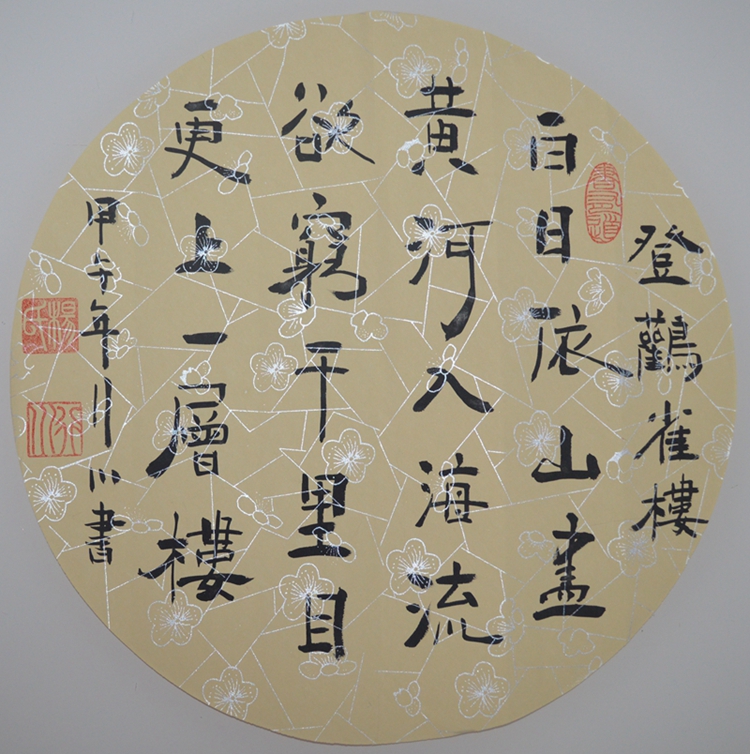 登鸛雀樓
白日依山盡
黄河入海流
欲窮千里目
更上一層樓
甲午年月川書
楊氏